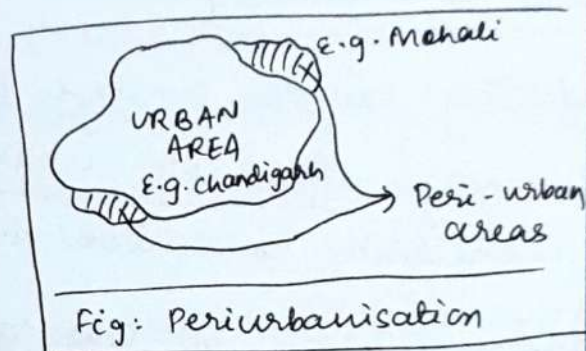 E.g. Mohali
URBAN
AREA
E.g. Chandigarh
Peri-urban
areas
Fig: Periurbanisation